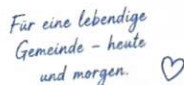 Für eine lebendige
Gemeinde – heute
und morgen.